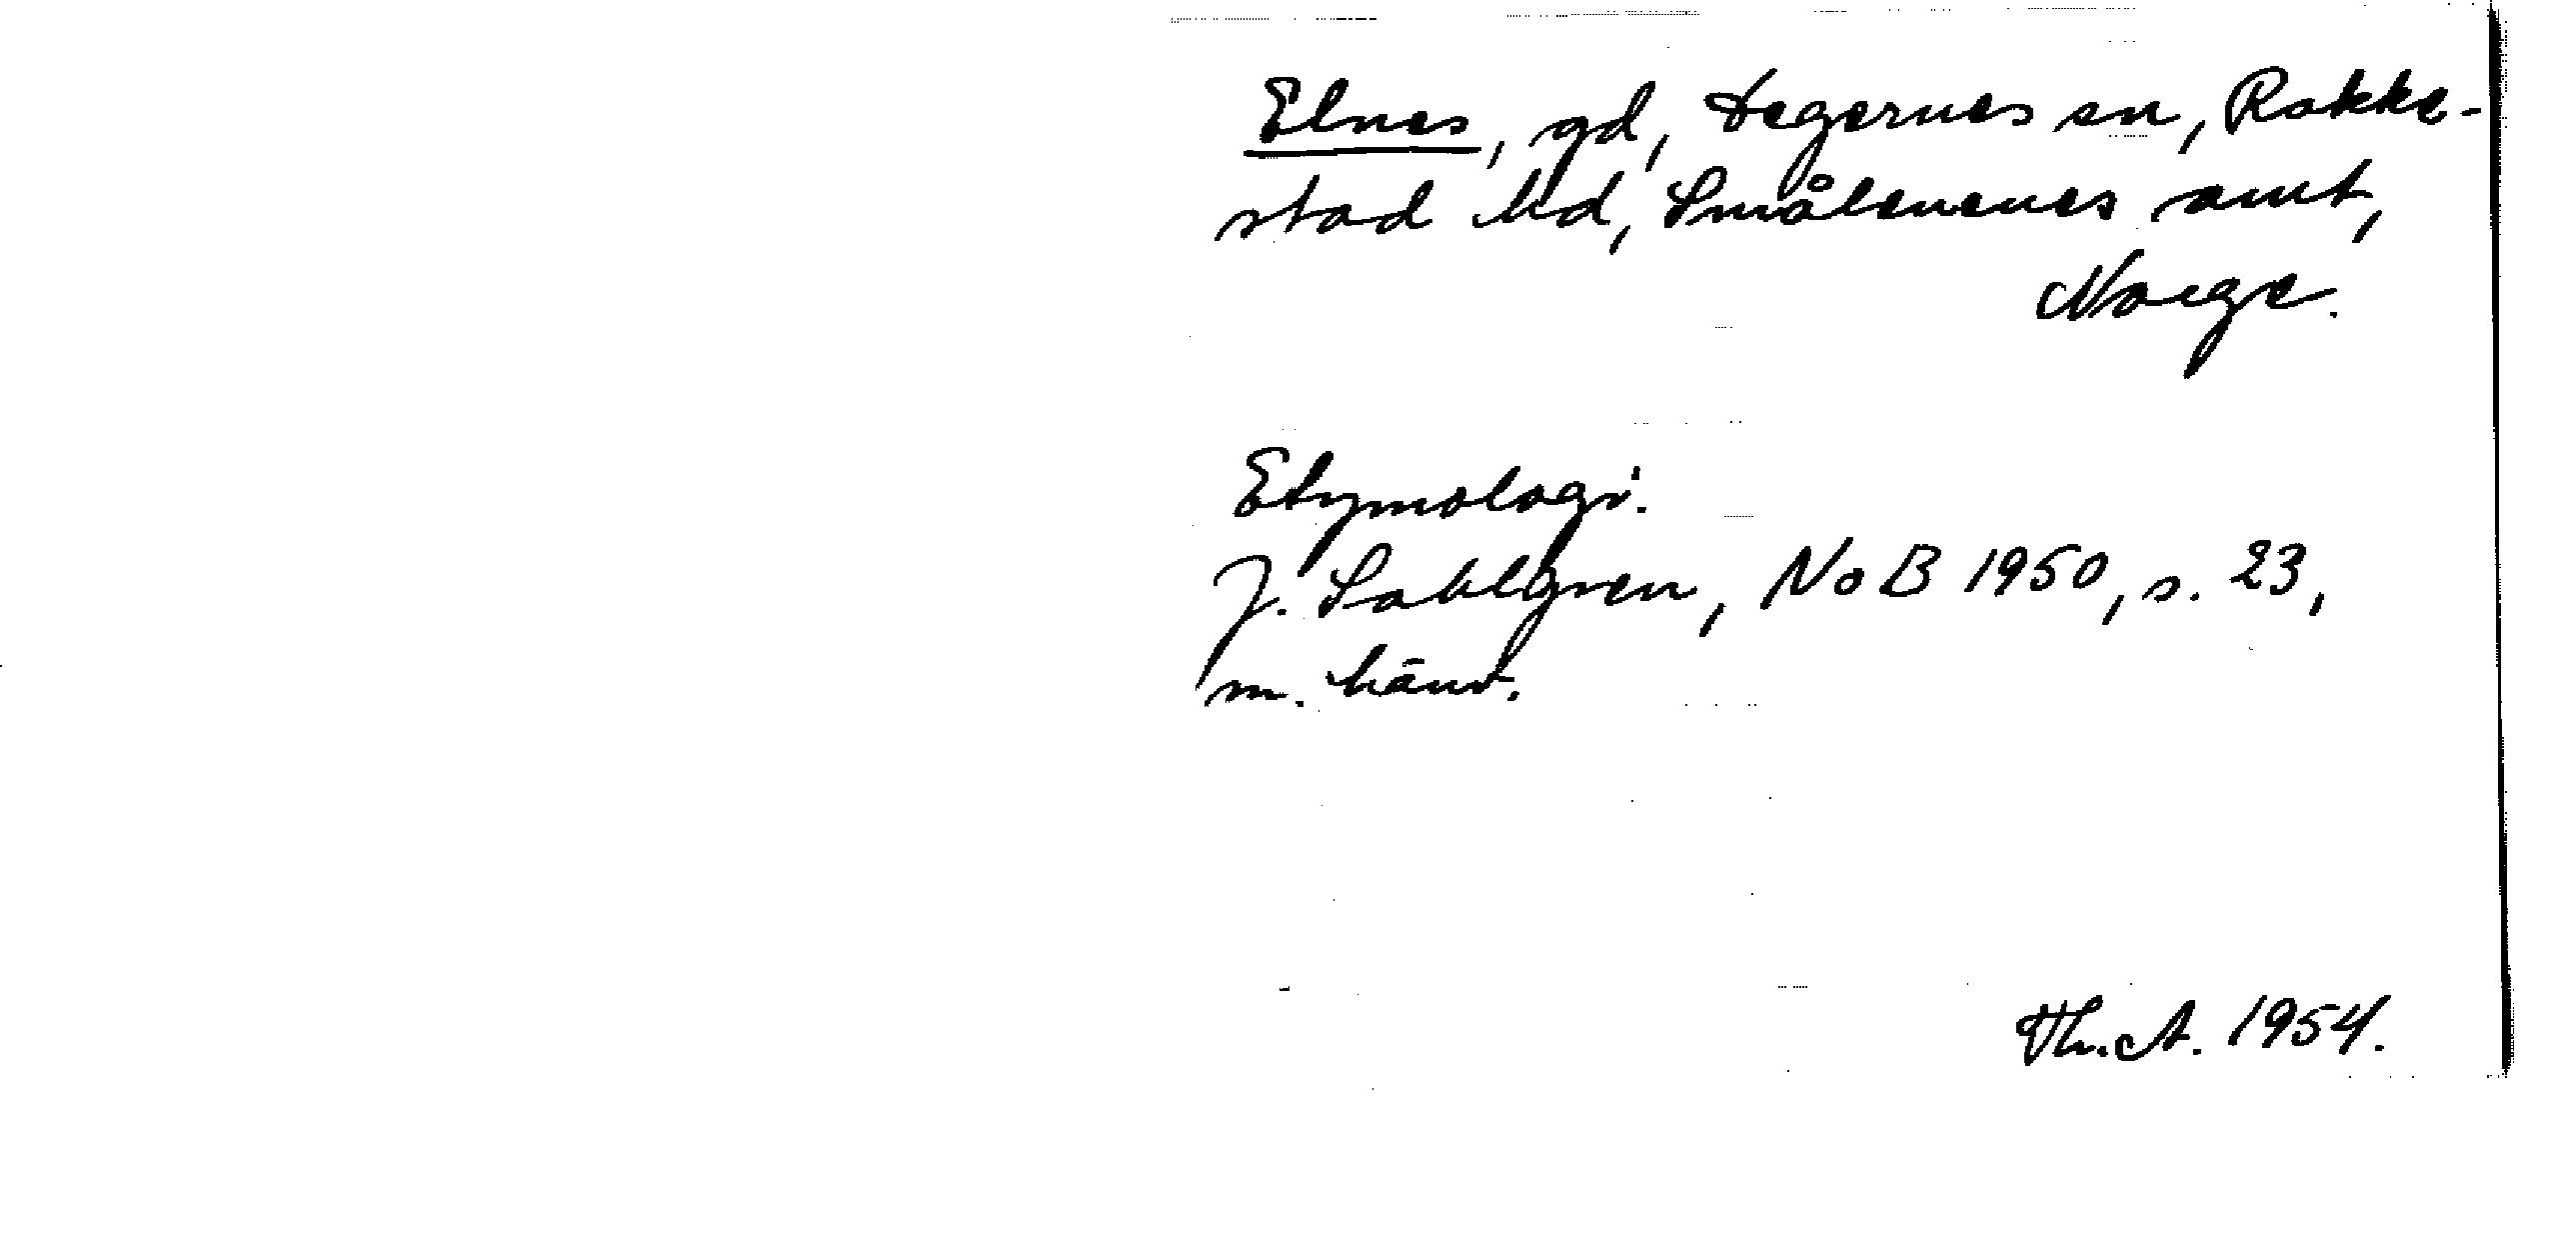 Elnes, gd, Degernes sn, Rakke-
stad hd, Smålenenes amt,
Norge.
Etymologi.
J. Sahlgren, NoB 1950, s. 23,
m. hänv.
Th.A. 1954.